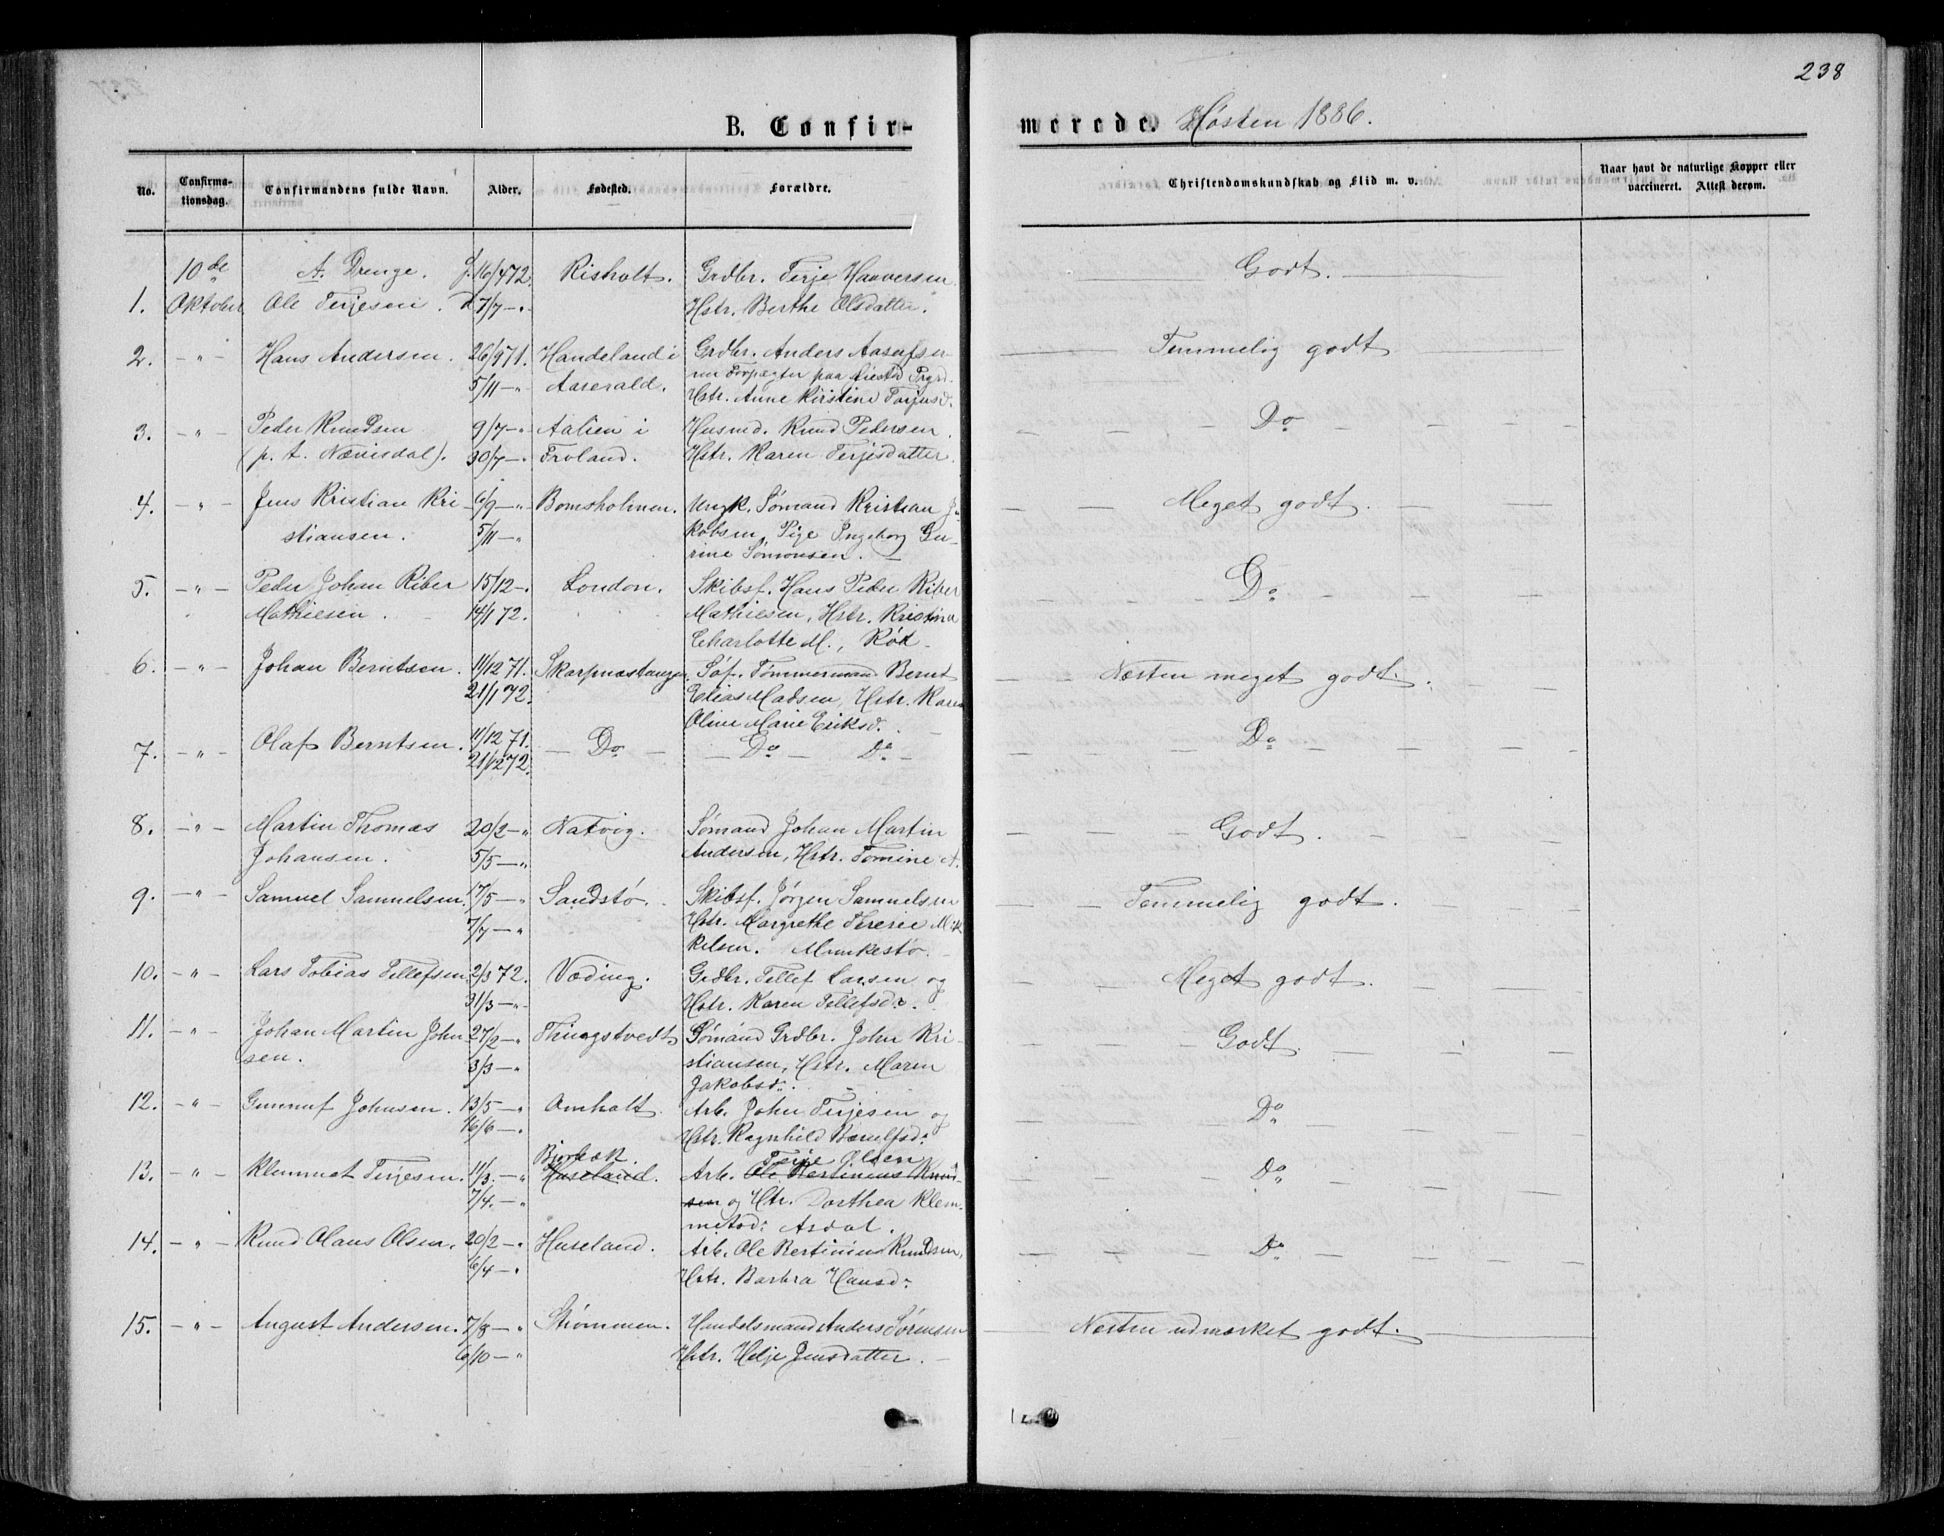 238
B. Confir-
merede. Høsten 1886.
No. Confirma-tionsdag. Confirmandens fulde Navn. Alder. Fødested. Forældre. Christendomskundskab og Flid m. v. Naar havt de naturlige Kopper eller vaccineret. Attest derom.
10de A. Drenge. f. 16/4 72. Risholt. Grdbr. Terje Haaversen Godt.
1. Oktober Ole Terjesen. d. 7/7 — " Hstr. Berthe Olsdatter.
2. — " — Hans Andersen. 26/9 71. Handeland i Grdbr. Anders Aasulfse- Temmelig godt
5/11 — " Aaserald. nu Forpagter paa
Hstr. Anne Kirstine Torjusd.
3. — " — Peder Knudsen 9/7 — " Aalien i Husmd. Knud Pedersen. Do
(p. t. Nævisdal). 30/7 — " Froland. Hstr. Karen Terjesdatter
4. — " — Jens Kristian Kri- 6/9 — " Bomsholmen. Ungk. Sømand Kristian Ja- Meget godt.
stiansen. 5/11 — " kobsen, Pige Ingeborg Gu-
rine Simonsen.
5. — " — Peder Johan Riber 15/12 — " London. Skibsf. Hans Peder Riber Do
Mathiesen. 14/1 72. Mathiesen, Hstr. Kristina
Charlotte M., Rød
6. — " — Johan Berntsen. 11/12 71. Skarpnæstangen. Søf. Tømmermand Bernt Næsten meget godt.
21/1 72. Elias Madsen, Hstr. Karen
Oline Marie Eriksd.
7. — " — Olaf Berntsen. 11/12 71. — Do — — Do — Do — Do
21/1 72.
8. — " — Martin Thomas 20/2 — " Natvig. Sømand Johan Martin Godt.
Johansen. 5/5 — " Andersen, Hstr. Tomine A.
9. — " — Samuel Samuelsen. 17/5 — " Sandstø. Skibsf. Jørgen Samuelsen Temmelig godt.
7/7 — " Hstr. Margrethe Terese Mik-
kelsen. Munkestø.
10. — " — Lars Tobias Tellefsen 2/3 72. Væding. Grdbr. Tellef Larsen og Meget godt.
31/3 — " Hstr. Karen Tellefsd.
11. — " — Johan Martin John- 27/2 — " Thingstvedt Sømand Grdbr. John Kri- Godt.
sen. 3/3 — " stiansen, Hstr. Maren
Jakobsd.
12. — " — Gunnuf Johnsen. 13/5 — " Omholt. Arb. John Terjesen og Do
16/6 — " Hstr. Ragnhild
Bjorbæk. Terje Olsen
13. — " — Klemmet Terjesen. 11/3 — " Huseland. Arb. Ole Bertinius Knud- Do
7/4 — " sen og Hstr. Dorthea Klem-
metsd. Asdal.
14. — " — Knud Olaus Olsen. 20/2 — " Huseland. Arb. Ole Bertinius Knudsen, Do
6/4 — " Hstr. Barbra Hansd.
15. — " — August Andersen. 7/8 — " Strømmen. Handelsmand Anders Sørensen Næsten udmærket godt.
6/10 — " Hstr. Helje Jensdatter.